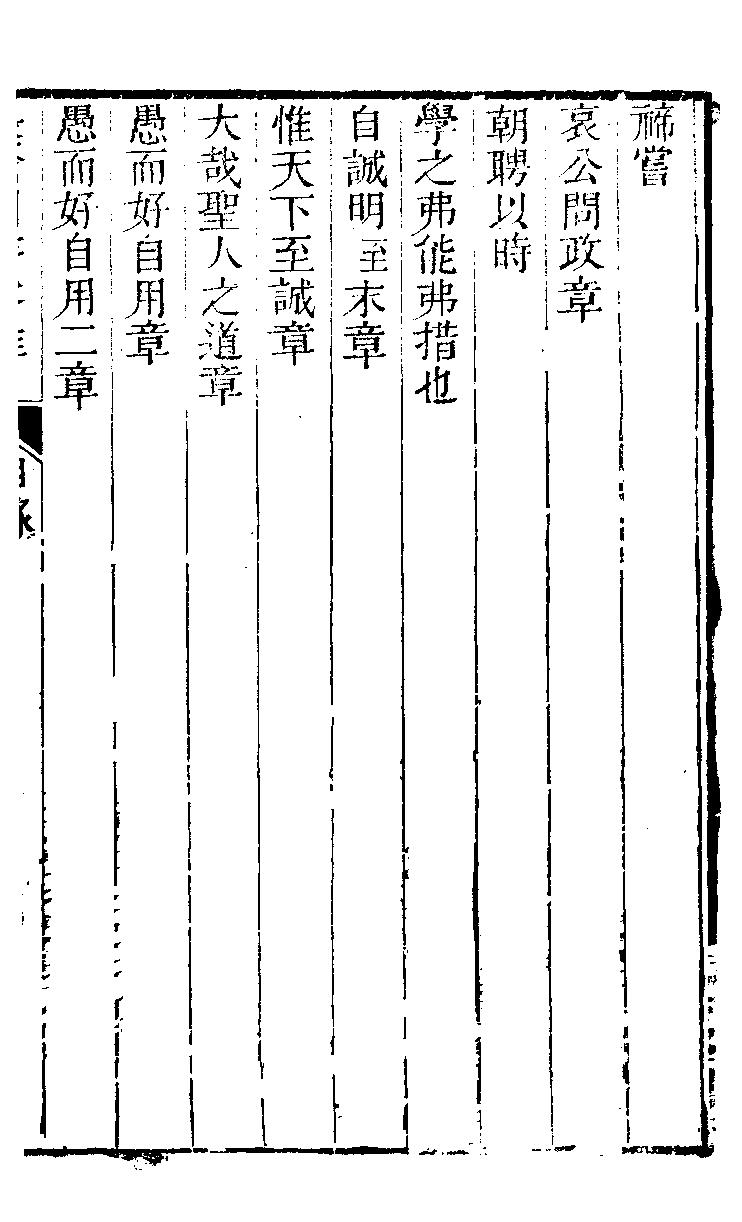 禘嘗
哀公問政章
朝聘以時
學之弗能弗措也
自誠明至末章
惟天下至誠章
大哉聖人之道章
愚而好自用章
愚而好自用二章
目錄